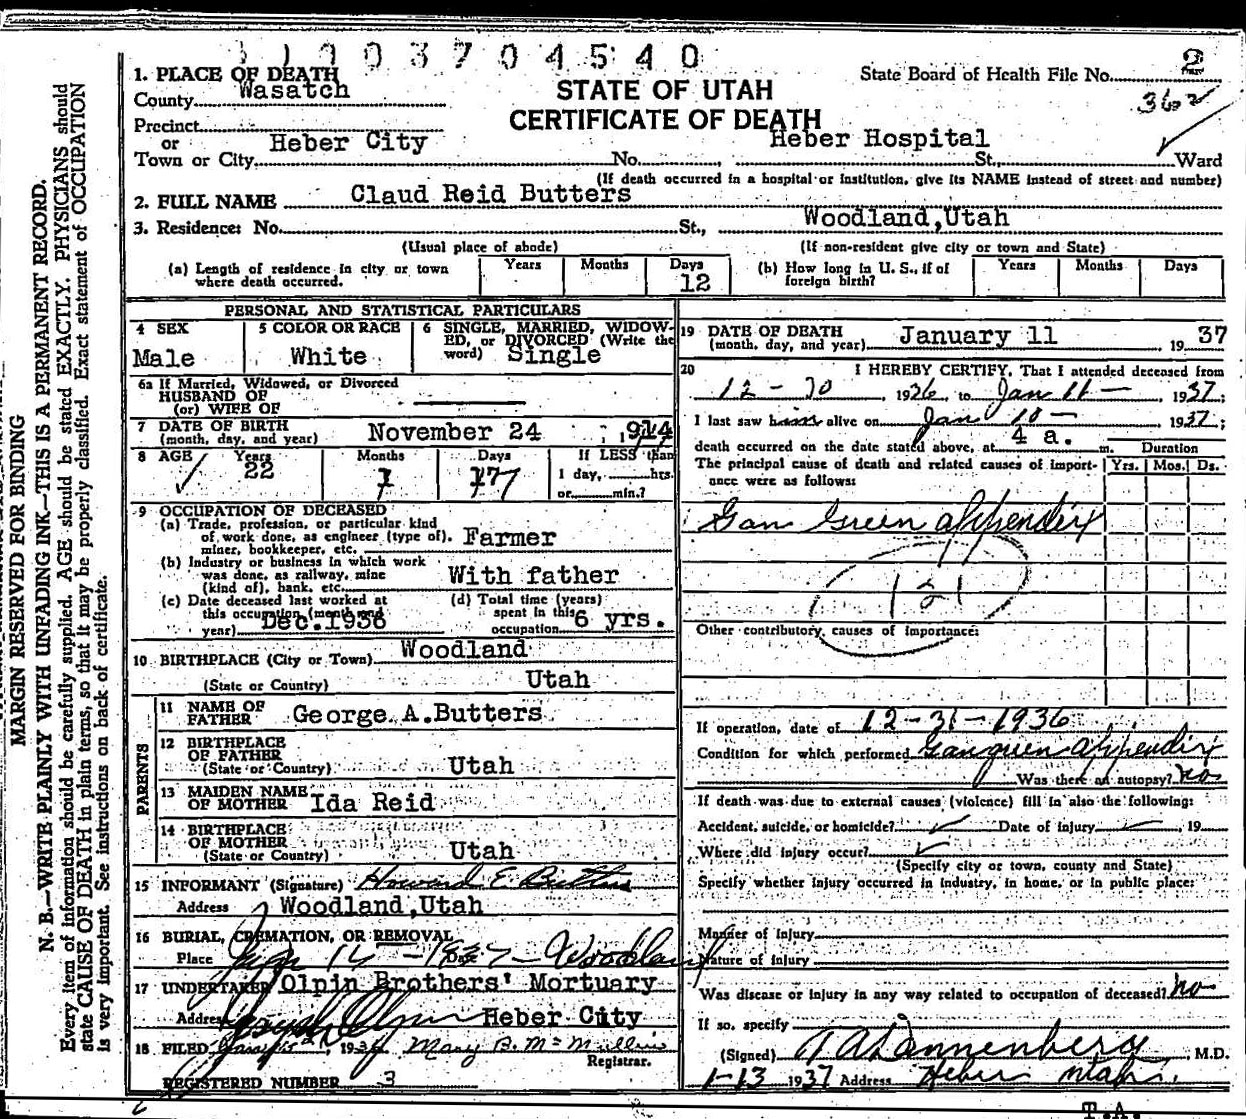 1 1 0 0 3 7 0 4 5 4 0
1. PLACE OF DEATH
County Wasatch
STATE OF UTAH
CERTIFICATE OF DEATH
State Board of Health File No. 2
362
Precinct
or
Town or City Heber City No. Heber Hospital St., Ward
(If death occurred in a hospital or institution, give its NAME instead of street and number)
2. FULL NAME Claud Reid Butters
3. Residence: No. St., Woodland,Utah
(Usual place of abode) (If non-resident give city or town and State)
(a) Length of residence in city or town where death occurred. Years Months Days 12
(b) How long in U. S., if of foreign birth? Years Months Days
PERSONAL AND STATISTICAL PARTICULARS
4 SEX Male
5 COLOR OR RACE White
6 SINGLE, MARRIED, WIDOW-
ED, or DIVORCED (Write the
word) Single
6a If Married, Widowed, or Divorced
HUSBAND OF
(or) WIFE OF
7 DATE OF BIRTH
(month, day, and year) November 24, 1914
8 AGE Years 22 Months 1 Days 17 If LESS than
1 day, hrs.
or min.?
9 OCCUPATION OF DECEASED
(a) Trade, profession, or particular kind
of work done, as engineer (type of),
miner, bookkeeper, etc. Farmer
(b) Industry or business in which work
was done, as railway, mine
(kind of), bank, etc. With father
(c) Date deceased last worked at
this occupation (month and
year) Dec. 1936
(d) Total time (years)
spent in this
occupation 6 yrs.
10 BIRTHPLACE (City or Town) Woodland
(State or Country) Utah
PARENTS
11 NAME OF
FATHER George A.Butters
12 BIRTHPLACE
OF FATHER
(State or Country) Utah
13 MAIDEN NAME
OF MOTHER Ida Reid
14 BIRTHPLACE
OF MOTHER
(State or Country) Utah
15 INFORMANT (Signature) Howard E. Butters
Address Woodland,Utah
16 BURIAL, CREMATION, OR REMOVAL
Place Jan 14 - 1937 - Woodland
17 UNDERTAKER Olpin Brothers' Mortuary
Address Heber City
18 FILED 193 Mary B. McMullin
Registrar.
REGISTERED NUMBER 3
19 DATE OF DEATH
(month, day, and year) January 11 1937
20 I HEREBY CERTIFY, That I attended deceased from
12-30, 1936, to Jan 11 -, 1937;
I last saw him alive on Jan 10 - 1937;
death occurred on the date stated above, at 4 a. m. Duration
The principal cause of death and related causes of import-
ance were as follows: Yrs. Mos. Ds.
Gan Green appendix
121
Other contributory causes of importance:
If operation, date of 12-31-1936
Condition for which performed Gangreen appendix
Was there an autopsy? no
If death was due to external causes (violence) fill in also the following:
Accident, suicide, or homicide? Date of injury , 19
Where did injury occur?
(Specify city or town, county and State)
Specify whether injury occurred in industry, in home, or in public place:
Manner of injury
Nature of injury
Was disease or injury in any way related to occupation of deceased? no
If so, specify
(Signed) T A Dannenberg, M.D.
1-13 1937 Address Heber Utah.
T.A.
MARGIN RESERVED FOR BINDING
N. B.—WRITE PLAINLY WITH UNFADING INK—THIS IS A PERMANENT RECORD.
Every item of information should be carefully supplied. AGE should be stated EXACTLY. PHYSICIANS should
state CAUSE OF DEATH in plain terms, so that it may be properly classified. Exact statement of OCCUPATION
is very important. See instructions on back of certificate.